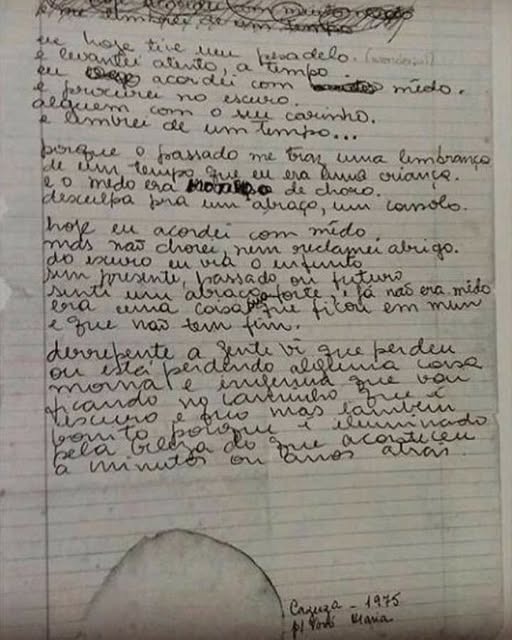 acordei com medo
e me lembrei de um tempo
eu hoje tive um pesadelo.
e levantei atento, a tempo.
eu acordei com mêdo.
e procurei no escuro.
alguem com o seu carinho.
e lembrei de um tempo...
porque o passado me traz uma lembrança
de um tempo que eu era uma criança.
e o mêdo era motivo de choro.
desculpa pra um abraço, um consolo.
hoje eu acordei com mêdo
mas não chorei, nem reclamei abrigo.
do escuro eu via o infinito
sem presente, passado ou futuro
senti um abraço forte, e já não era mêdo
era uma coisa sua que ficou em mim
e que não tem fim.
derrepente a gente vê que perdeu
ou está perdendo alguma coisa
morna e ingenua que vai
ficando no caminho que é
escuro e frio mas também
bonito porque é iluminado
pela beleza do que aconteceu
a minutos ou anos atras.
Cazuza - 1975
p/ Vovó Maria